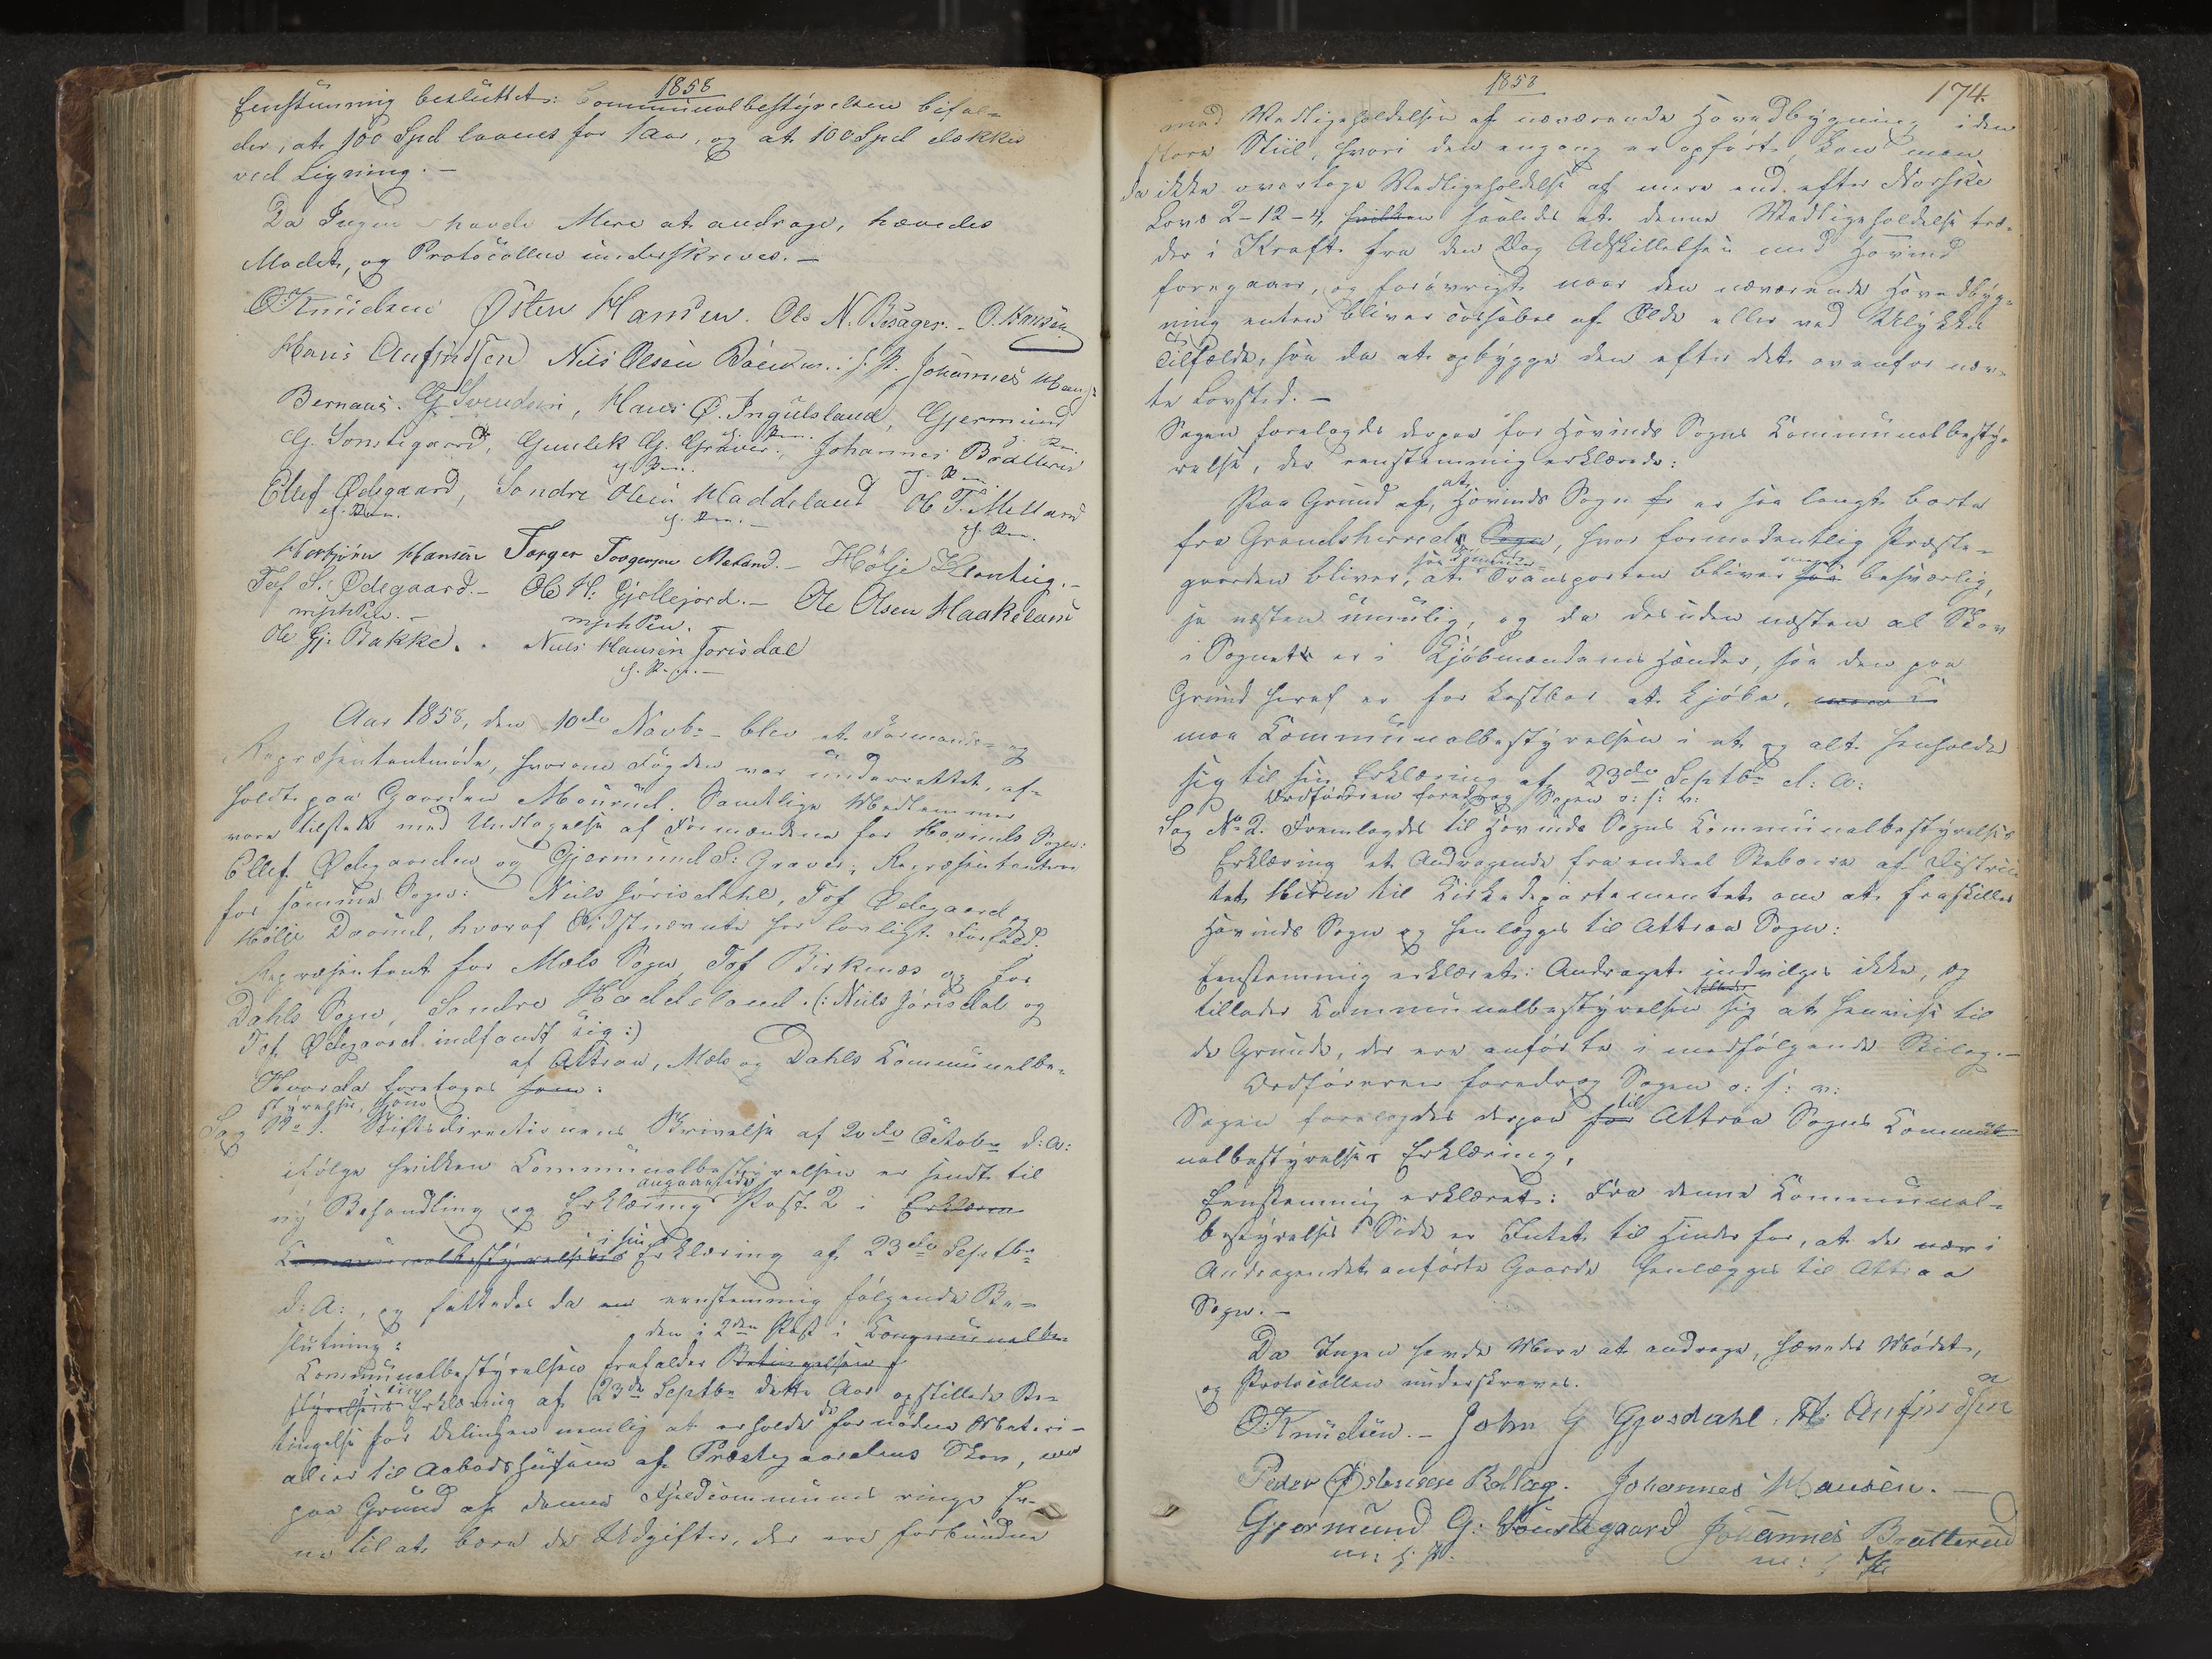 1858
Eenstemmig besluttet: Communalbestyrelsen bifal-
der, at 100 Spd laanes for 1 Aar, og at 100 Spd dækkes
ved Ligning. —
Da Ingen havde Mere at andrage, hævedes
Mødet, og Protocollen underskreves. —
O. Knudsen Østen Hansen. Ole N. Bøsager. – O. Hansen
Hans Anfindsen Nils Olsen Johannes Hans
Bernaas. G. Svendsen, Hans Ø. Ingulsland, Gjermund
G. Sønstegaard, Gunlek G. Graver, Johannes Bratterud
Ellef Ødegaard, Sondre Olsen Haddeland Ole T. Melland
Herbjörn Hansen Torger Torgersen Meland. – Hølje –
Tof S. Ødegaard. – Ole H. Gjellejord. – Ole Olsen Haakeland
mphPen. – mphPen. –
Ole Gj. Bakke. Nils Hansen Jorisdal
Aar 1858, den 10de Novbr – blev et Formands- og
Repræsentantmøde, hvorom Fogden var underrettet, af-
holdt paa Gaarden Maurud. Samtlige Medlemmer
vare tilstede med Undtagelse af Formændene for Hovinds Sogn:
Ellef Ødegaarden og Gjermund S: Graver; Repræsentanterne
for samme Sogn: Niils Jørisdahl, Tof Ødegaard og
Hölje hvoraf Sidstnævnte har lovligt Forfald.
Repræsentant for Mæls Sogn, Tof Birkenæs og for
Dahls Sogn, Sondre Haddeland. (: Niils Jørisdal og
Tof Ødegaard indfandt sig :)
af Attraa, Mæls og Dahls Communalbe-
Hvorda foretoges som:
styrelse,
Sag No 1. Stiftsdirectionens Skrivelse af 20de Octobr d: A:
ifølge hvilken Communalbestyrelsen er sendt til
angaaende
ny Behandling og Erklæring Post 2 i Erklæren
i sin
Communalbestyrelsens Erklæring af 23de Septbr
d: A:, og fattedes da en eenstemmig følgende Be-
slutning:
den i 2den Post i Communalbe-
Communalbestyrelsen frafalder Betingelsen f
i sin
styrelsens Erklæring af 23de Septbr dette Aar opstillede Be-
tingelse for Delingen nemlig at erholde de fornødne Materi-
alier til Aabodshusene af Præstegaardens Skov, men
paa Grund af denne Fjeldcommunes ringe Ev-
ne til at bære de Udgifter, der ere forbundne
1858
174.
med Vedligeholdelsen af nuværende Hovedbygning i den
store Stiil, hvori den engang er opført, kan man
da ikke overtage Vedligeholdelse af mere end efter Norske
Lovs 2–12–4, hvilken saaledes at denne Vedligeholdelse træ-
der i Kraft fra den Dag Adskillelsen med Hovind
foregaaer, og forøvrigt naar den nuværende Hovedbyg-
ning enten bliver af Ælde eller ved Ulykkes
Tilfælde, saa da at opbygge den efter det ovenfor næv-
te Lovsted. —
Sagen forelagdes derpaa for Hovinds Sogns Communalbesty-
relse, der eenstemmig erklærede:
at
Paa Grund af, Hovinds Sogn fr er saa langt borte
fra Gransherred Sogn, hvor formodentlig Præste-
gaarden bliver, at Transporten bliver saa besværlig,
meget
ja næsten umulig, og da desuden næsten al Skov
i Sognet er i Kjøbmændenes Hænder, saa den paa
Grund heraf er for kostbar at kjøbe,
maa Communalbestyrelsen i et og alt henholde
sig til sin Erklæring af 23de Septbr d: A:
Ordføreren foredrog Sagen o: s: v:
Sag No 2. Fremlagdes til Hovinds Sogns Communalbestyrelses
Erklæring et Andragende fra endeel Beboere af Distric-
tet til Kirkedepartementet om at fraskilles
Hovinds Sogn og henlægges til Attraa Sogn:
Eenstemmig erklæret: Andraget indvilges ikke, og
tillader
tillader Communalbestyrelsen sig at henvise til
de Grunde, der ere anførte i medfølgende Bilag. —
Ordføreren foredrog Sagen o: s: v:
til
Sagen forelagdes derpaa for Attraa Sogns Commu-
nalbestyrelses Erklæring,
Eenstemmig erklæret: Fra denne Communal-
bestyrelses Side er Intet til Hinder for, at de i
Andragendet anførte Gaarde henlægges til Attraa
Sogn. —
Da Ingen havde Mere at andrage, hævedes Mødet,
og Protocollen underskreves.
O. Knudsen. – John G Gjøsdahl. H: Anfindsen
Peder Østensen Bollag. Johannes Hansen. —
Gjermund G: Sönstegaard Johannes Bratterud
m: f: P. m: f P.